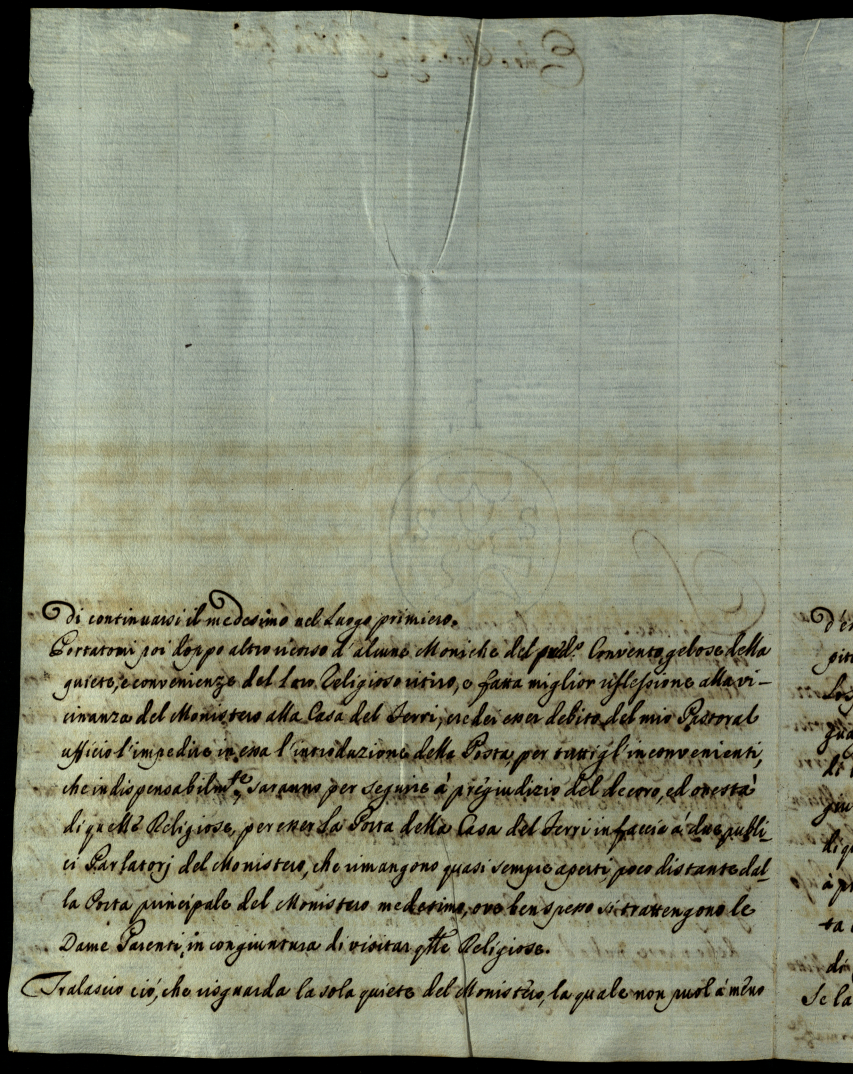 di continuarsi il medesimo nel Luogo primiero.
Portatomi poi doppo altro ricorso d'alcune Moniche del pred.º Convento gelose della
quiete, e convenienze del loro Religioso ritiro, e fatta miglior riflessione alla vi-
cinanza del Monistero alla Casa del Ferri, credei esser debito del mio Pastoral
ufficio l'impedire in essa l'introduzione della Posta, per tutti gl'inconvenienti,
che indispensabilm.te saranno per seguire à pregiudizio del decoro, ed onestà
di quelle Religiose, per esser la Porta della Casa del Ferri in faccia à due publi-
ci Parlatorj del Monistero, che rimangono quasi sempre aperti, poco distante dal-
la Porta principale del Monistero medesimo, ove ben spesso si trattengono le
Dame Parenti, in congiuntura di visitar q.lle Religiose.
Tralascio ciò, che risguarda la sola quiete del Monistero, la quale non puol à meno